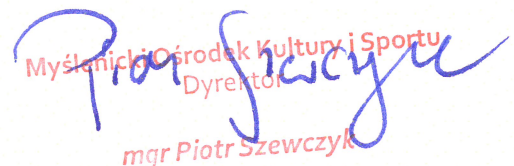 Myślenicki Ośrodek Kultury i Sportu
Dyrektor
Piotr Szewczyk
mgr Piotr Szewczyk